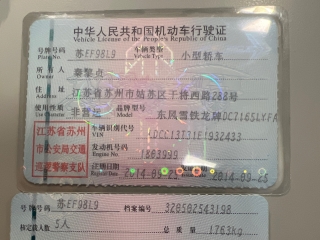 中华人民共和国机动车行驶证
Vehicle License of the People's Republic of China
号牌号码 苏EF98L9 车辆类型 小型轿车
Plate No. Vehicle Type
所有人
Owner
住址 江苏省苏州市姑苏区干将西路288号
Address
使用性质 非营运 品牌型号 东风雪铁龙牌DC7165LYFA
Use Character Model
江苏省苏州市公安局交通巡逻警察支队
车辆识别代号
VIN
发动机号码 1863999
Engine No.
注册日期 2014-09-25
Register Date 2014-09-25
号牌号码 苏EF98L9 档案编号 320502543198
核定载人数 5人 总质量 1763kg